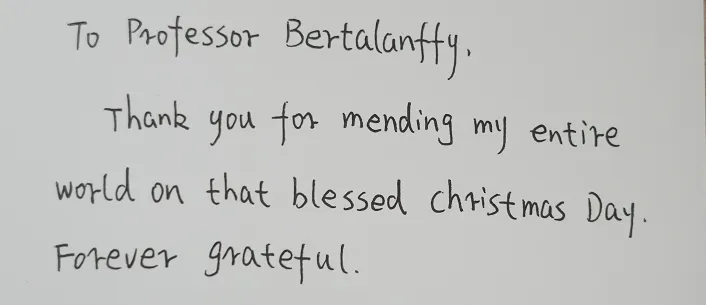 To Professor Bertalanffy.
Thank you for mending my entire
world on that blessed christmas Day.
Forever grateful.